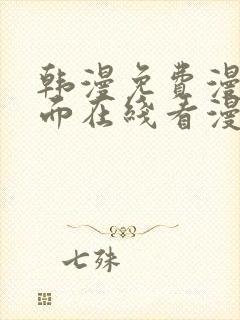 韩漫免费漫
而在线看漫
七殊